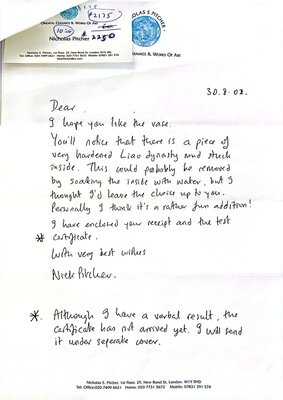 £2175
ORIENTAL CERAMICS & WORKS OF ART
NICHOLAS PITCHER
2250
Nicholas S. Pitcher, 1st Floor, 29, New Bond St, London, W1Y 9HD
Tel: Office: 020 7499 6621 Home: 020 7731 5672 Mobile: 07831 391 574
NICHOLAS S PITCHER
CERAMICS & WORKS OF ART
30.8.02.
Dear
I hope you like the vase.
You'll notice that there is a piece of
very hardened Liao dynasty mud stuck
inside. This could probably be removed
by soaking the inside with water, but I
thought I'd leave the choice up to you.
Personally I think it's a rather fun addition!
I have enclosed your receipt and the test
* certificate.
With very best wishes
Nick Pitcher.
*. Although I have a verbal result, the
certificate has not arrived yet. I will send
it under seperate cover.
Nicholas S. Pitcher, 1st Floor, 29, New Bond St, London. W1Y 9HD
Tel: Office: 020 7499 6621 Home: 020 7731 5672 Mobile: 07831 391 574